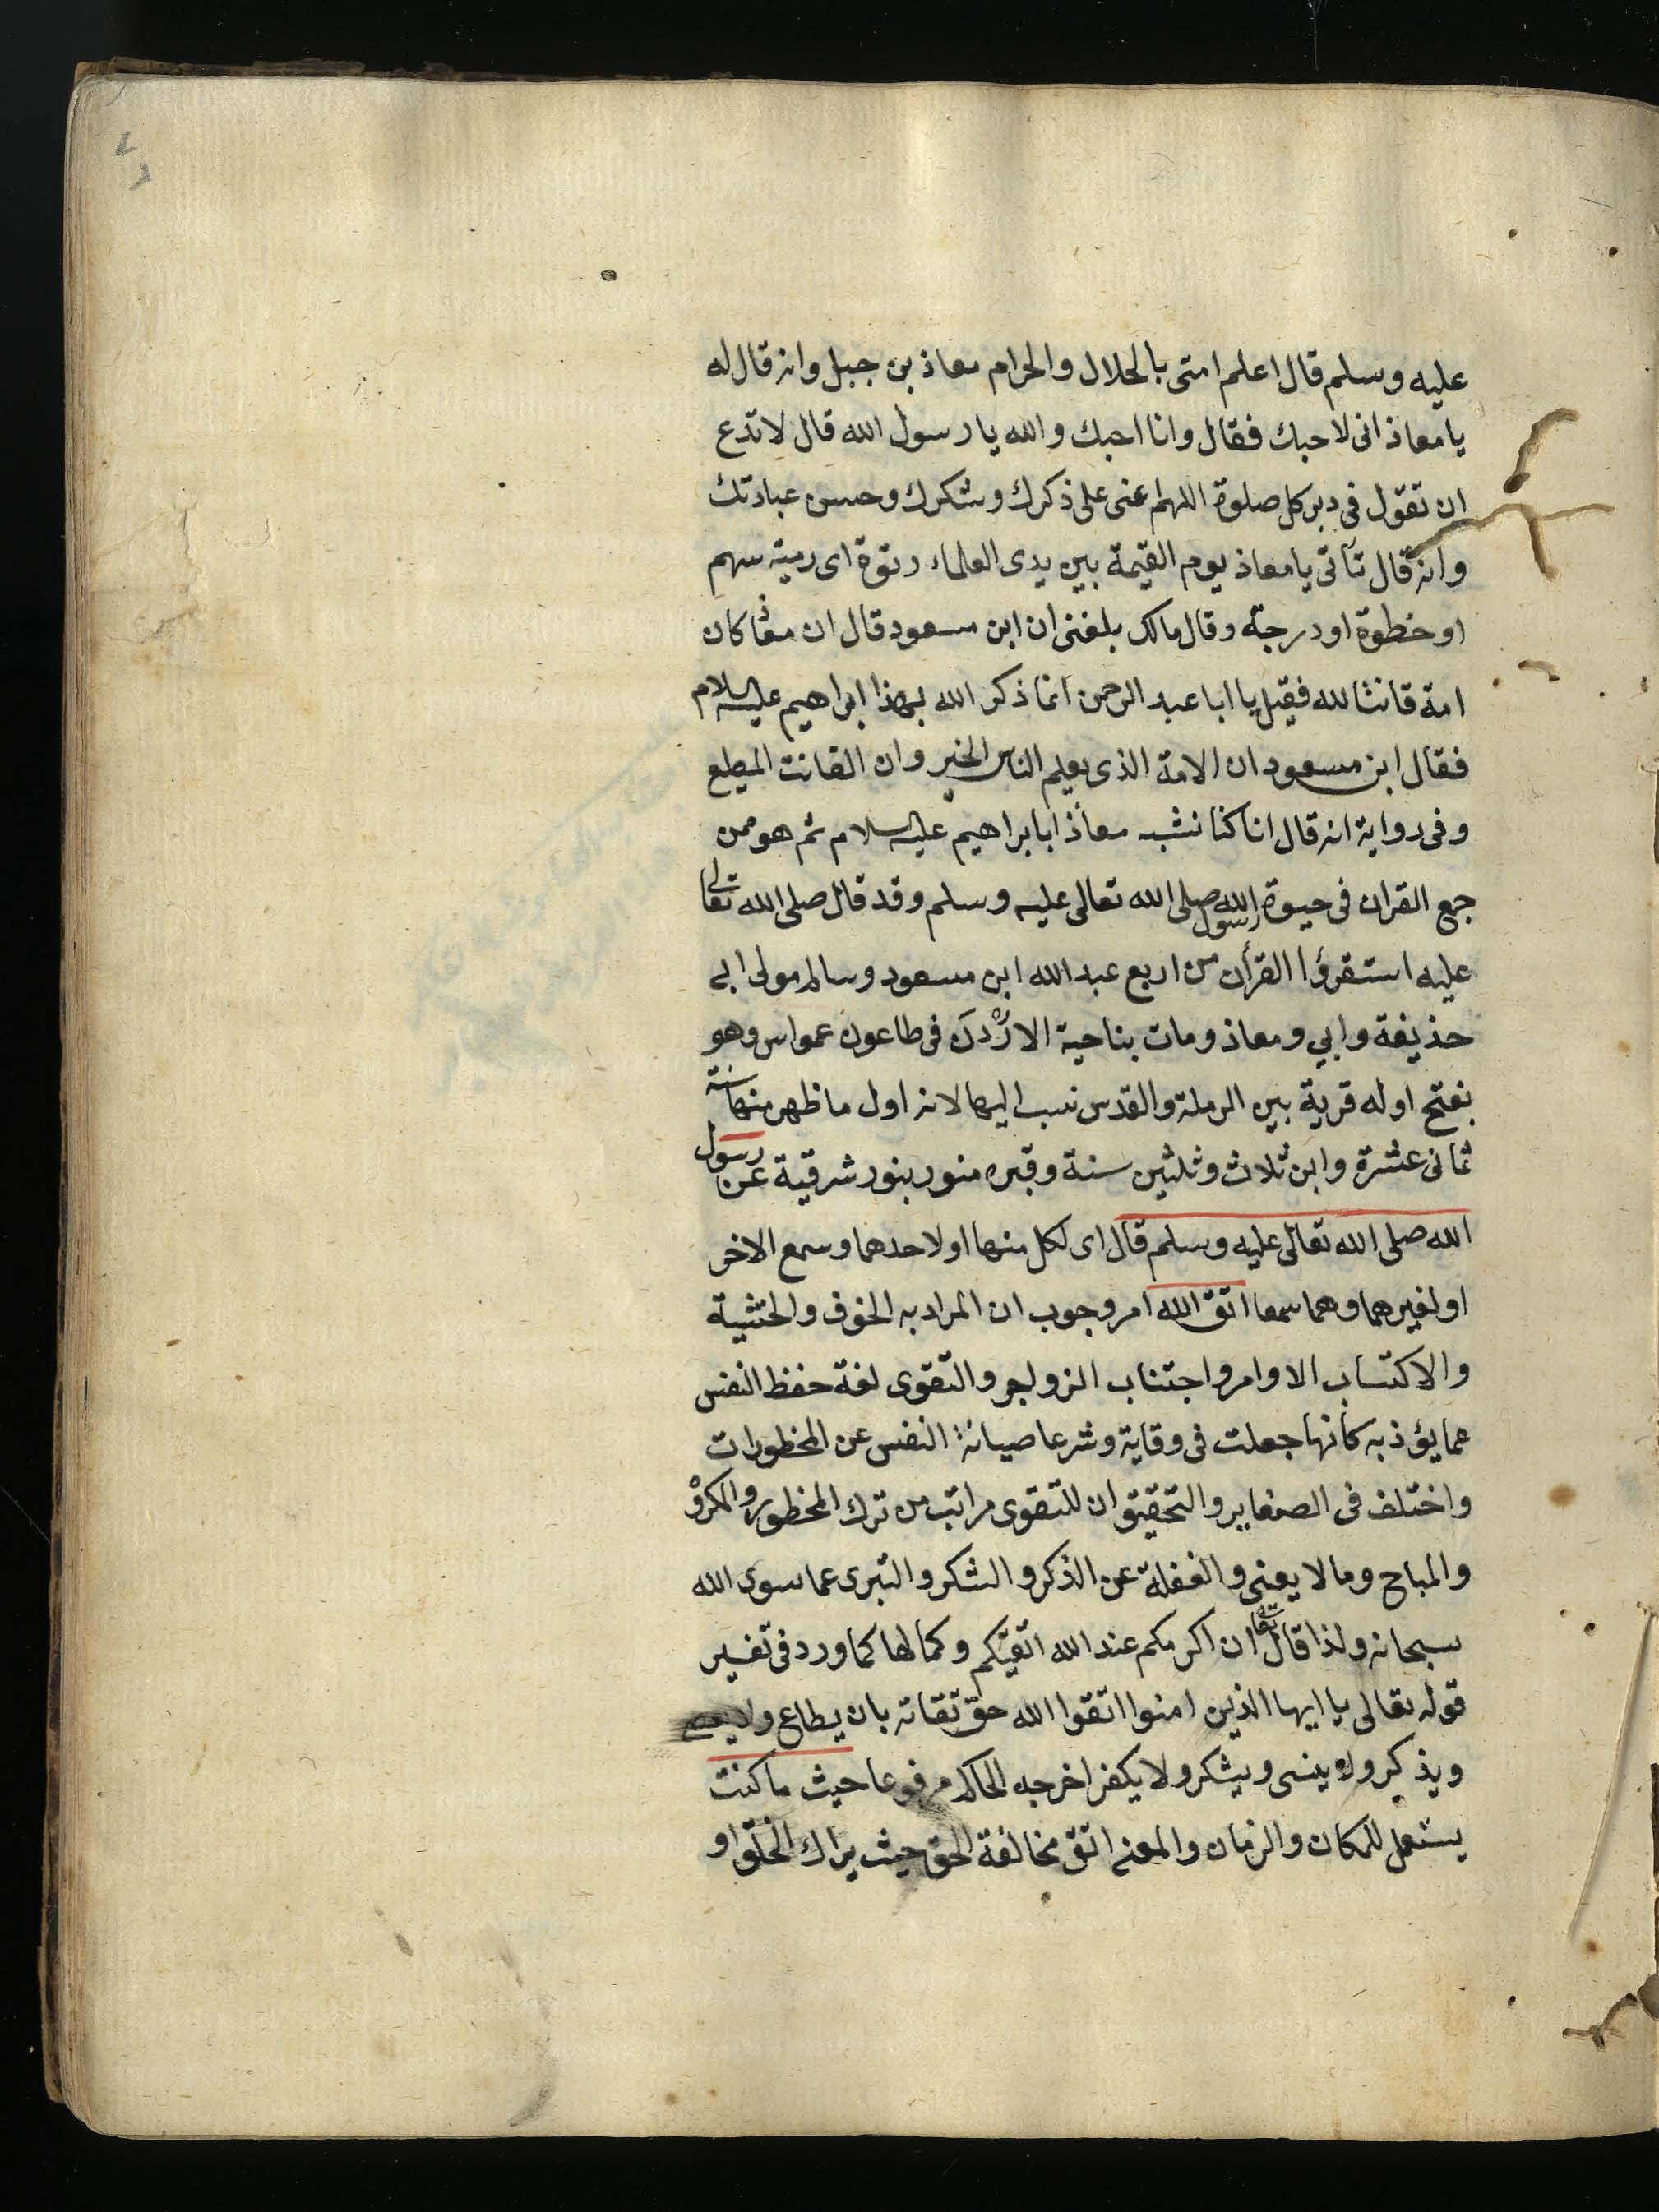 عليه وسلم قال اعلم امتى بالحلال والحرام معاذ بن جبل وانه قال له
يا معاذ انى لاحبك فقال وانا احبك والله يا رسول الله قال لا تدع
ان تقول فى دبر كل صلوة اللهم اعنى على ذكرك وشكرك وحسن عبادتك
وانه قال تأتى يا معاذ يوم القيمة بين يدى العلماء رتوة اى رمية سهم
او خطوة او درجة وقال مالك بلغنى ان ابن مسعود قال ان معاذا كان
امة قانتا لله فقيل يا ابا عبد الرحمن انما ذكر الله بهذا ابراهيم عليه السلام
فقال ابن مسعود ان الامة الذى يعلم الناس الخير وان القانت المطيع
وفى رواية انه قال انا كنا نشبه معاذا بابراهيم عليه السلام ثم هو ممن
جمع القران فى حيوة رسول الله صلى الله تعالى عليه وسلم وقد قال صلى الله تعالى
عليه استقرؤا القرأن من اربع عبد الله ابن مسعود وسالم مولى ابى
حذيفة وابي ومعاذ ومات بناحية الاردن فى طاعون عمواس وهو
بفتح اوله قرية بين الرملة والقدس نسب اليها لانه اول ما ظهر منها سنة
ثمانى عشرة وابن ثلاث وثلثين سنة وقبره منور بنور شرقية عن رسول
الله صلى الله تعالى عليه وسلم قال اى لكل منهما او لاحدهما وسمع الاخر
او لغيرهما وهما سمعا اتق الله امر وجوب ان المراد به الخوف والخشية
والاكتساب الاوامر واجتناب الزواجر والتقوى لغة حفظ النفس
عما يؤذ به كانها جعلت فى وقاية وشرعا صيانة النفس عن المحظورات
واختلف فى الصغاير والتحقيق ان للتقوى مراتب من ترك المحظور والمكروه
والمباح وما لا يعنى والغفلة عن الذكر والشكر والتبرى عما سوى الله
سبحانه ولذا قال تعالى ان اكرمكم عند الله اتقيكم وكمالها كما ورد فى تفسير
قوله تعالى يا ايها الذين امنوا اتقوا الله حق تقاته بان يطاع ولا يعصى
ويذكر ولا ينسى ويشكر ولا يكفر اخرجه الحاكم مرفوعا حيث ما كنت
يستعمل للمكان والزمان والمعنى اتق مخالفة الحق حيث يراك الخلق او